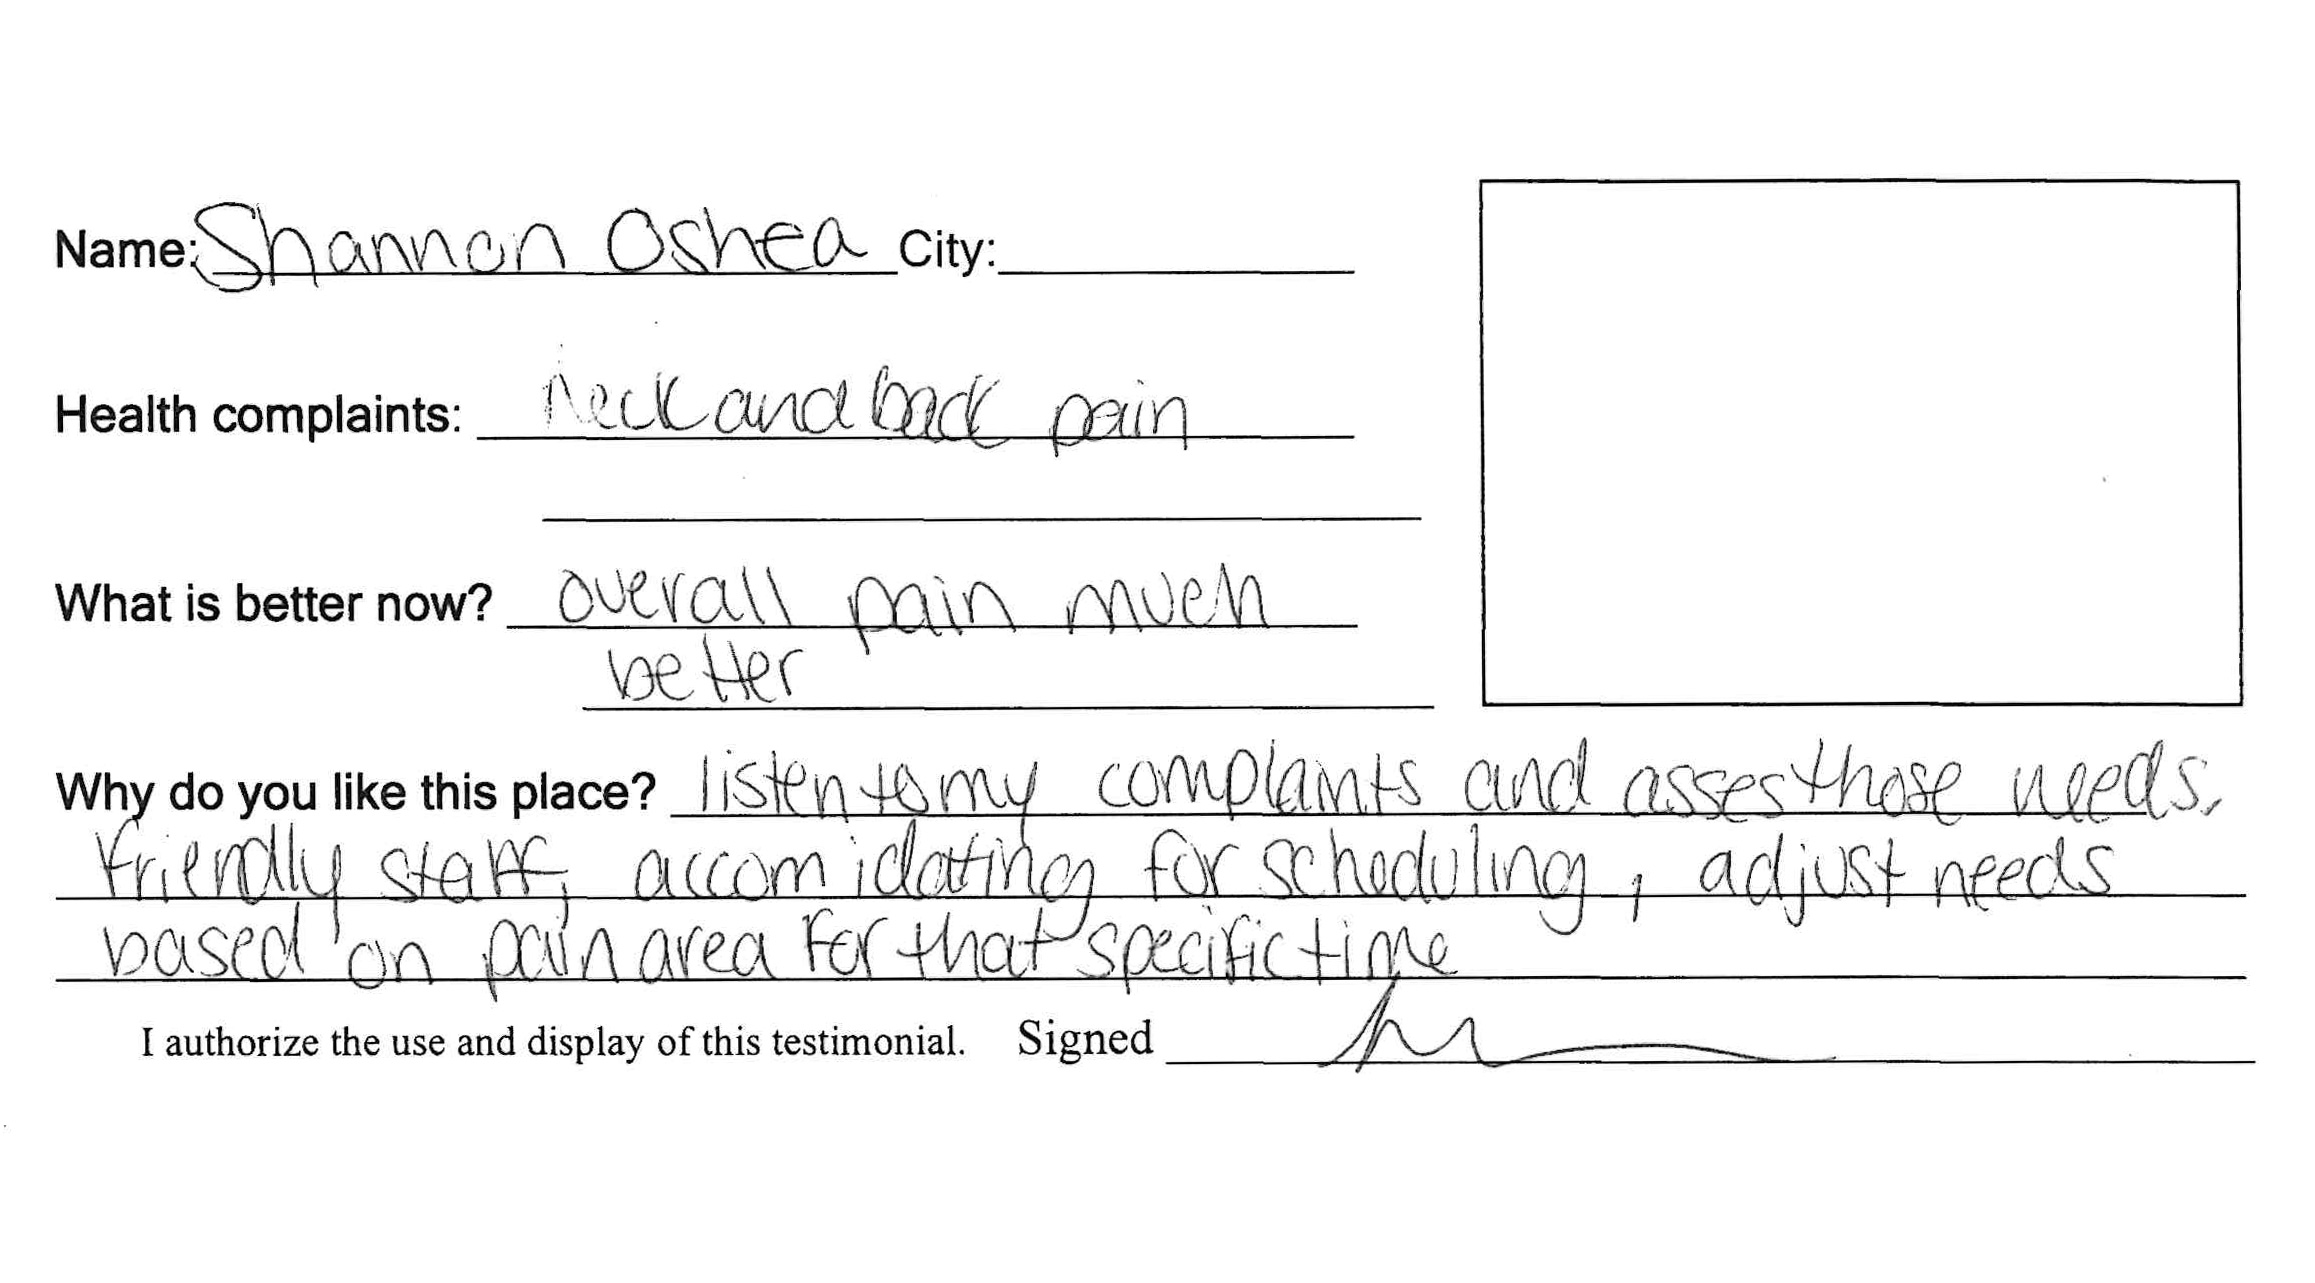 Name: Shannon Oshea City:
Health complaints: neck and back pain
What is better now? overall pain much
better
Why do you like this place? listen to my complants and asses those needs.
friendly staff, accomidating for scheduling, adjust needs
based on pain area for that specific time
I authorize the use and display of this testimonial. Signed